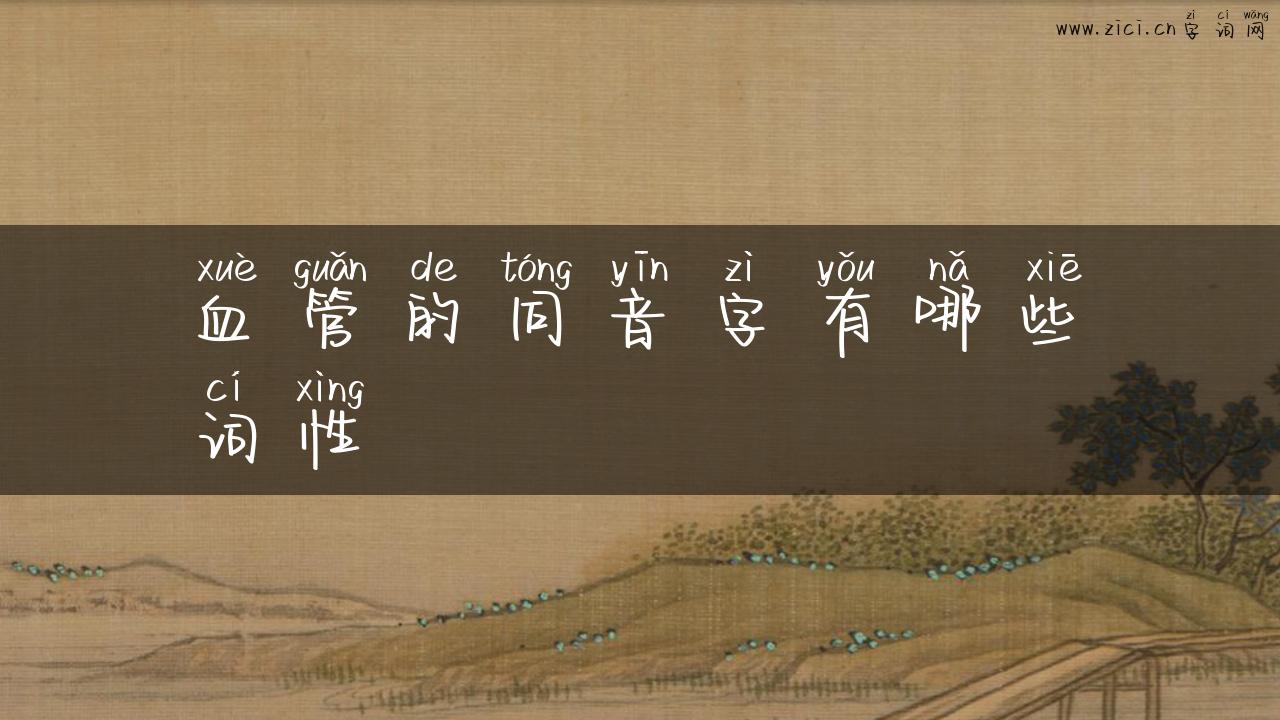 zì cí wǎng
www.zici.cn 字词网
xuè guǎn de tóng yīn zì yǒu nǎ xiē
血管的同音字有哪些
cí xìng
词性